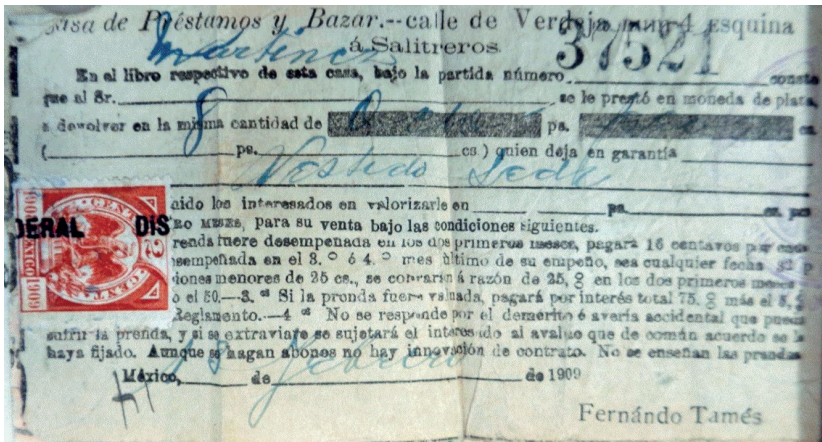 Casa de Préstamos y Bazar.--calle de Verdeja num 4 esquina
á Salitreros
37521
Martinez
En el libro respectivo de esta casa, bajo la partida número consta
que al Sr. se le prestó en moneda de plata,
a devolver en la misma cantidad de ps. cs.
8 Ocho
( ps. cs ) quien deja en garantía
Vestido Seda
nido los interesados en valorizarle en ps. cs. pcs
RO MESES, para su venta bajo las condiciones siguientes.
DERAL DIS
renda fuere desempeñada en los dos primeros meses, pagará 16 centavos por cada
sempeñada en el 3.º ó 4.º mes último de su empeño, sea cualquier fecha si p
iones menores de 25 cs., se cobrarán á razón de 25, % en los dos primeros meses
o el 50.—3.ª Si la prenda fuera valuada, pagará por interés total 75. % más el 5, %
Reglamento.—4.ª No se responde por el demérito ó avería accidental que pueda
sufrir la prenda, y si se extraviare se sujetará el interesado al avaluo que de común acuerdo se le
haya fijado. Aunque se hagan abonos no hay innovación de contrato. No se enseñan las prendas
México, 18 de Febrero de 1909
Fernándo Tamés